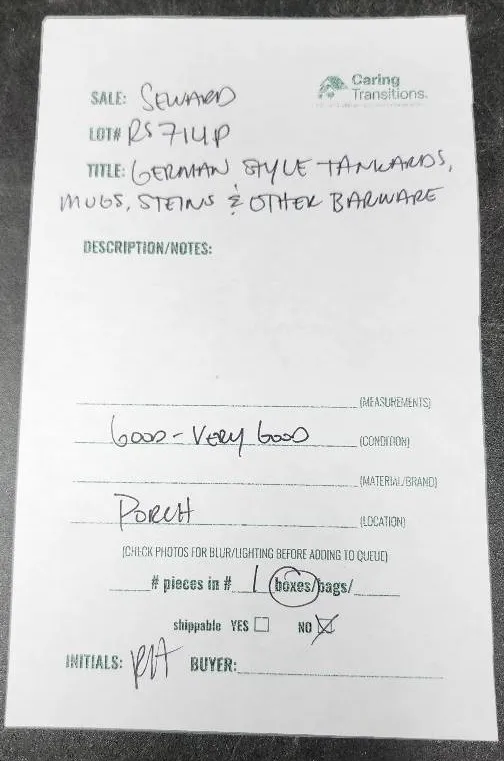 Caring
Transitions.
SALE: SEWARD
LOT# RS714P
TITLE: GERMAN STYLE TANKARDS,
MUGS, STEINS & OTHER BARWARE
DESCRIPTION/NOTES:
(MEASUREMENTS)
GOOD - VERY GOOD (CONDITION)
(MATERIAL/BRAND)
PORCH (LOCATION)
(CHECK PHOTOS FOR BLUR/LIGHTING BEFORE ADDING TO QUEUE)
# pieces in # 1 boxes/bags/
shippable YES NO
INITIALS: BUYER: